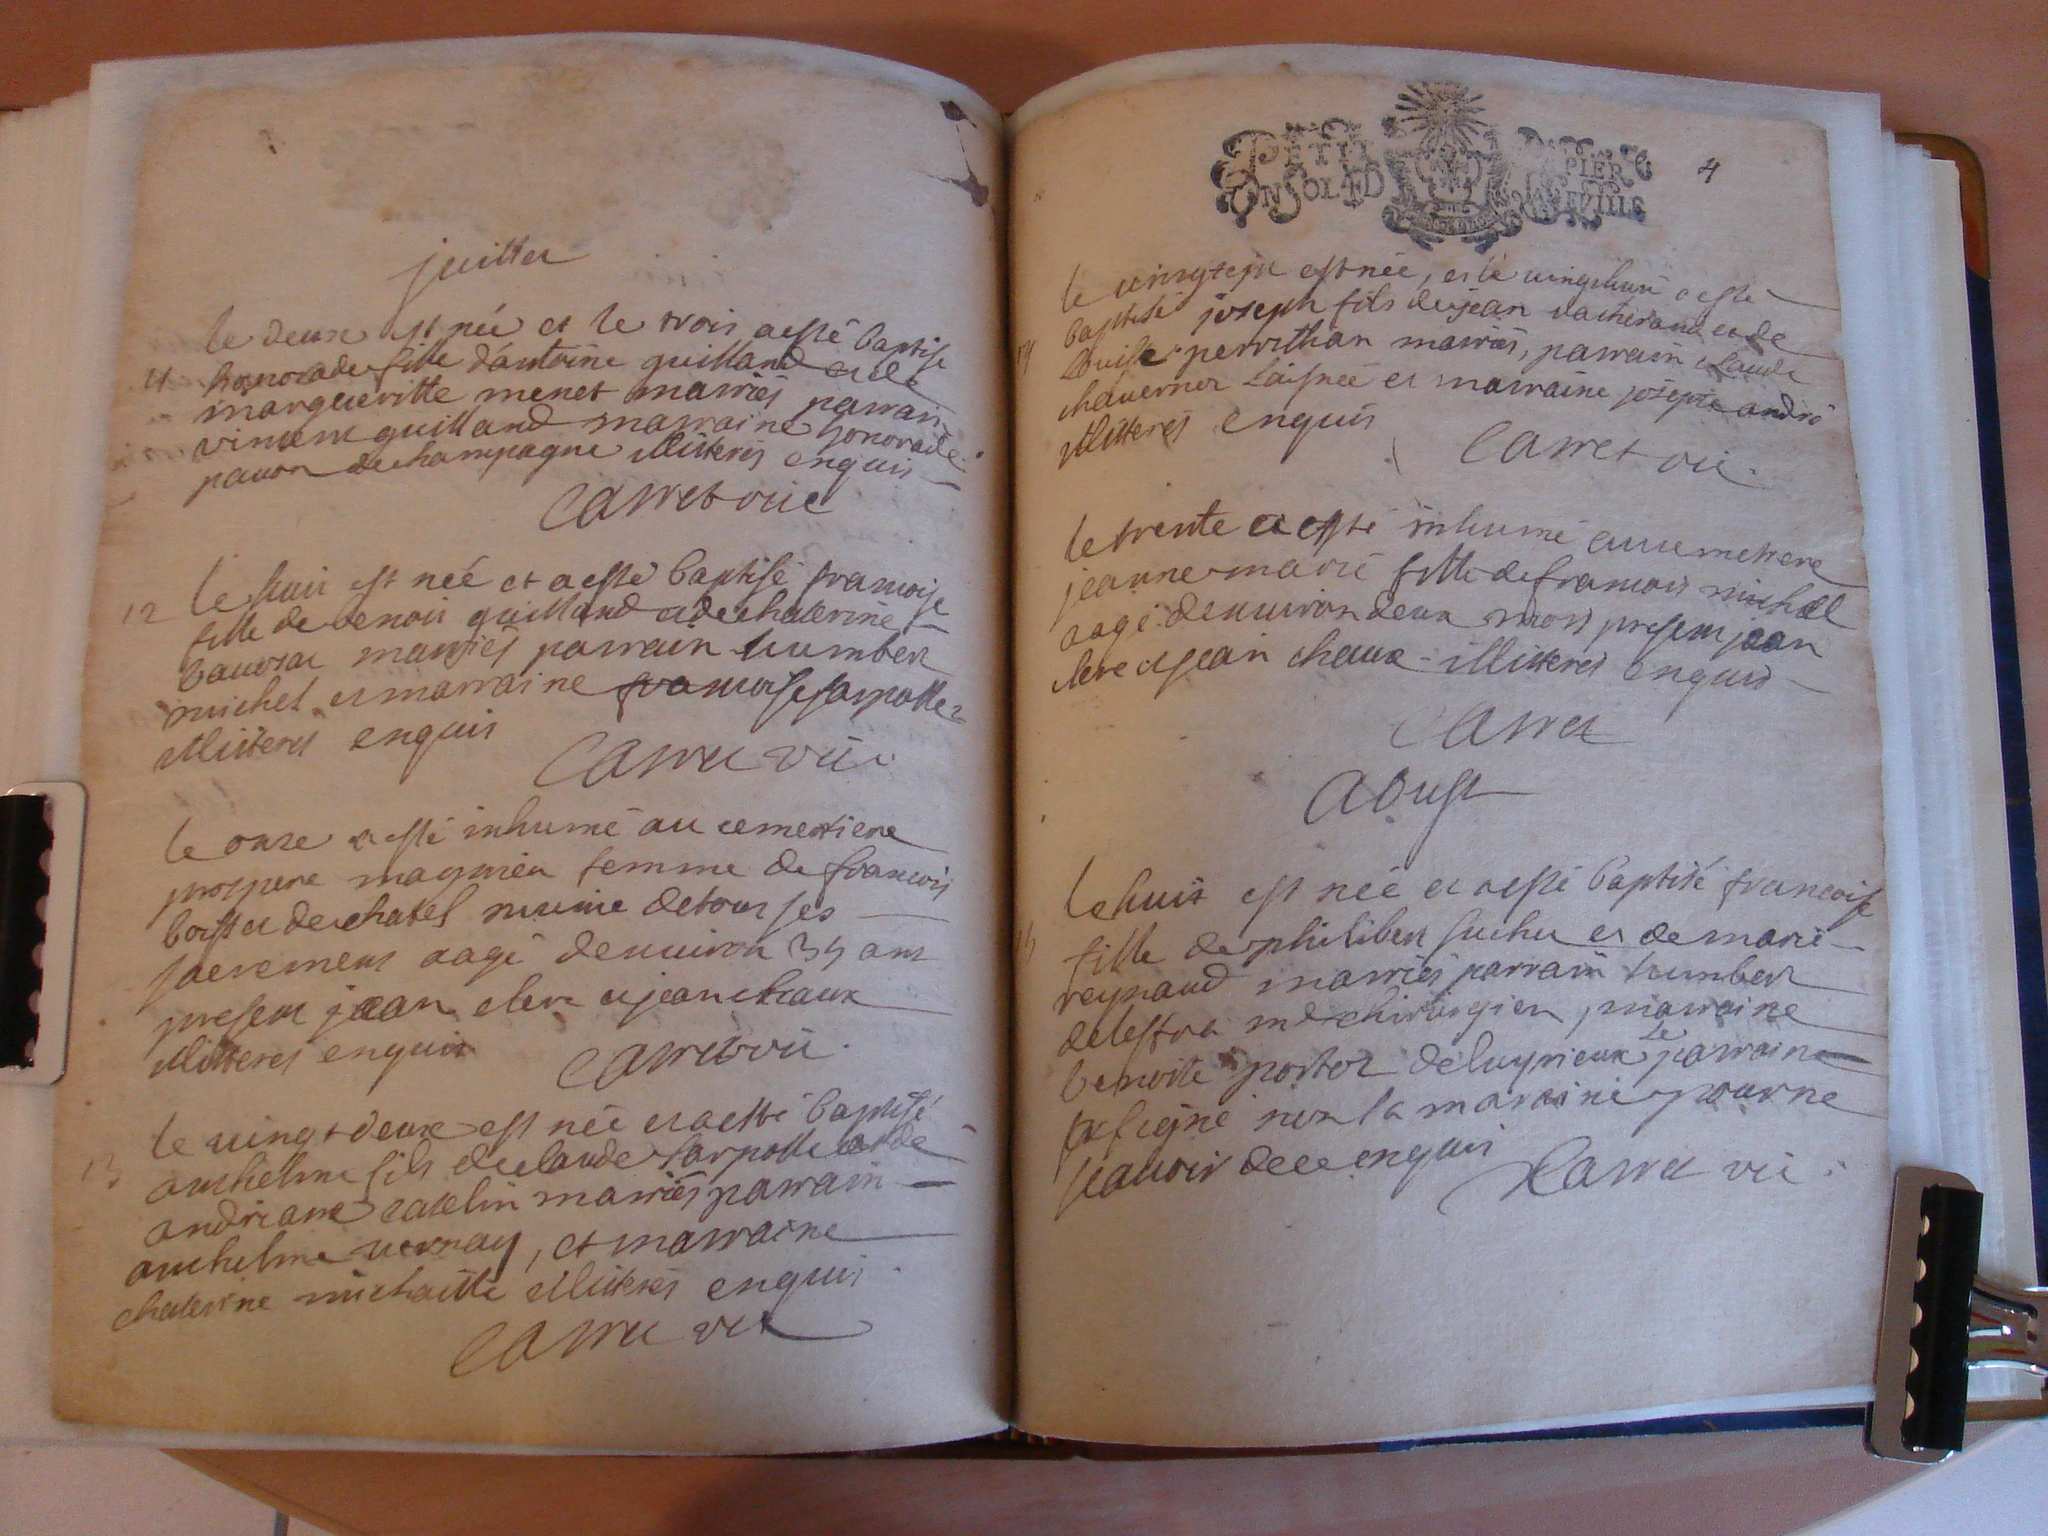 juillet
le deux est née et le trois a esté baptise
11 honorade fille d'antoine guilland et de
margueritte menet mariés parrain
vincent guilland marraine honorade
pavon de champagne illiteres enquis
Carret vic
12 le huit est née et a esté baptisé francoise
fille de benoit guilland et de chaterine
mariés parrain humbert
michel et marraine francoise sarpolle
illiteres enquis
Carret vic
le onze a esté inhumé au cemettiere
prospere femme de francois
de chatel munie de tous ses
sacremens aagé denviron 35 ans
present jean clerc et jean chaux
illiteres enquis
Carret vic
13 le vingt deux est née et a esté baptisé
anthelme fils de claude sarpolle et de
andriane catelin mariés parrain
anthelme vernay, et marraine
chaterine michaille illiteres enquis
Carret vic
PETIT PAPIER
UN SOL 4 D
4
le vingtsept est née, et le vingthuit a esté
14 baptisé joseph fils de jean vacherand et de
Louise perrithan mariés, parrain claude
chaverner Laisnée et marraine josepte andré
illiteres enquis
Carret vic
le trente a esté inhumé au cemetiere
jeanne marie fille de francois michel
aagé denviron deux mois present jean
clerc et jean chaux illiteres enquis
Carret
Aoust
le huit est née et a esté baptisé francoise
15 fille de philibert suchet et de marie
reynaud mariés parrain humbert
delestra md chirurgien, marraine
benoite portoz de luyrieux le parrain
a signé non la maraine pour ne
scavoir de ce enquis
Carret vic